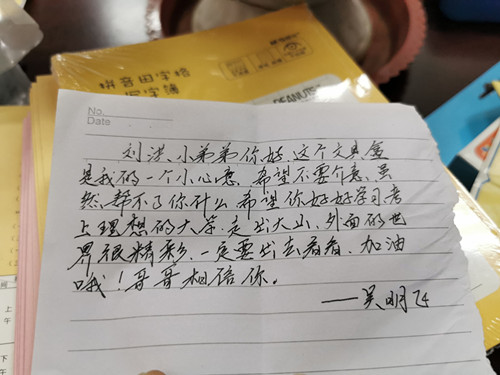 拼音田字格
写字簿
PEANUTS
No.
Date
刘洪、小弟弟你好,这个文具盒
是我的一个小心意,希望不要介意,虽
然帮不了你什么,希望你好好学习考
上理想的大学,走出大山,外面的世
界很精彩,一定要出去看看,加油
哦!哥哥相信你。
——吴明飞
上午
下午